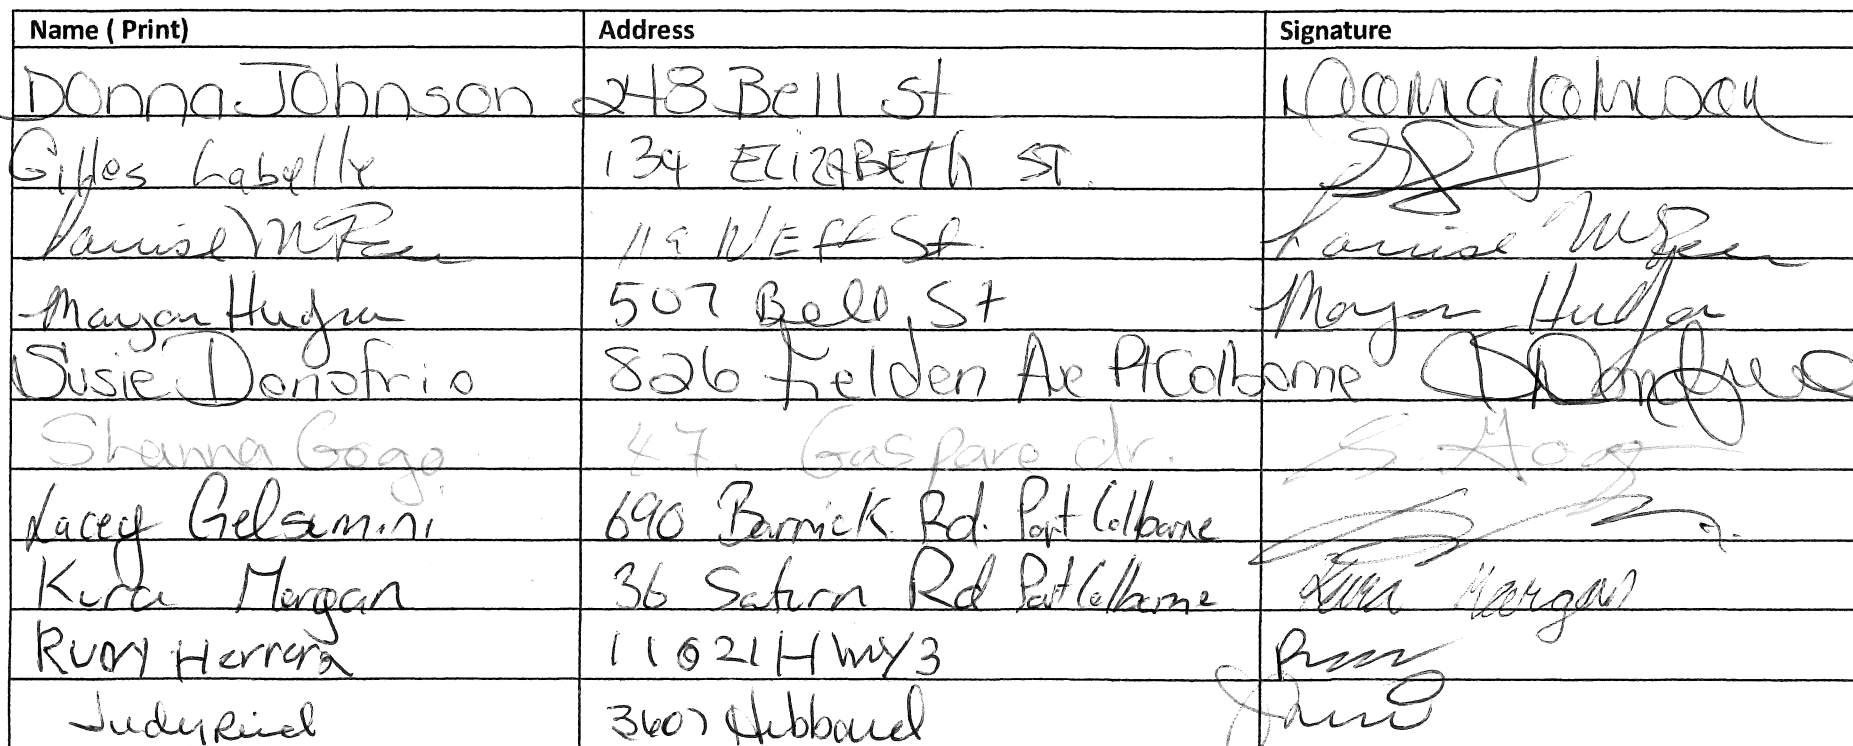 Name ( Print) Address Signature
Donna Johnson 248 Bell St Donna Johnson
Gilles Labelle 134 ELIZABETH ST.
Louise 119 NEff St. Louise
507 Bell St
Susie Donofrio 826 Fielden Ave Pt Colborne
Shanna Gogo 47 Gasparo dr. S. Gogo
Lacey Gelsimini 690 Barrick Rd. Port Colborne
Kira Morgan 36 Saturn Rd Port Colborne Morgan
Rudy Herrera 11021 HWY3
Judy Reid 3607 Hibbard